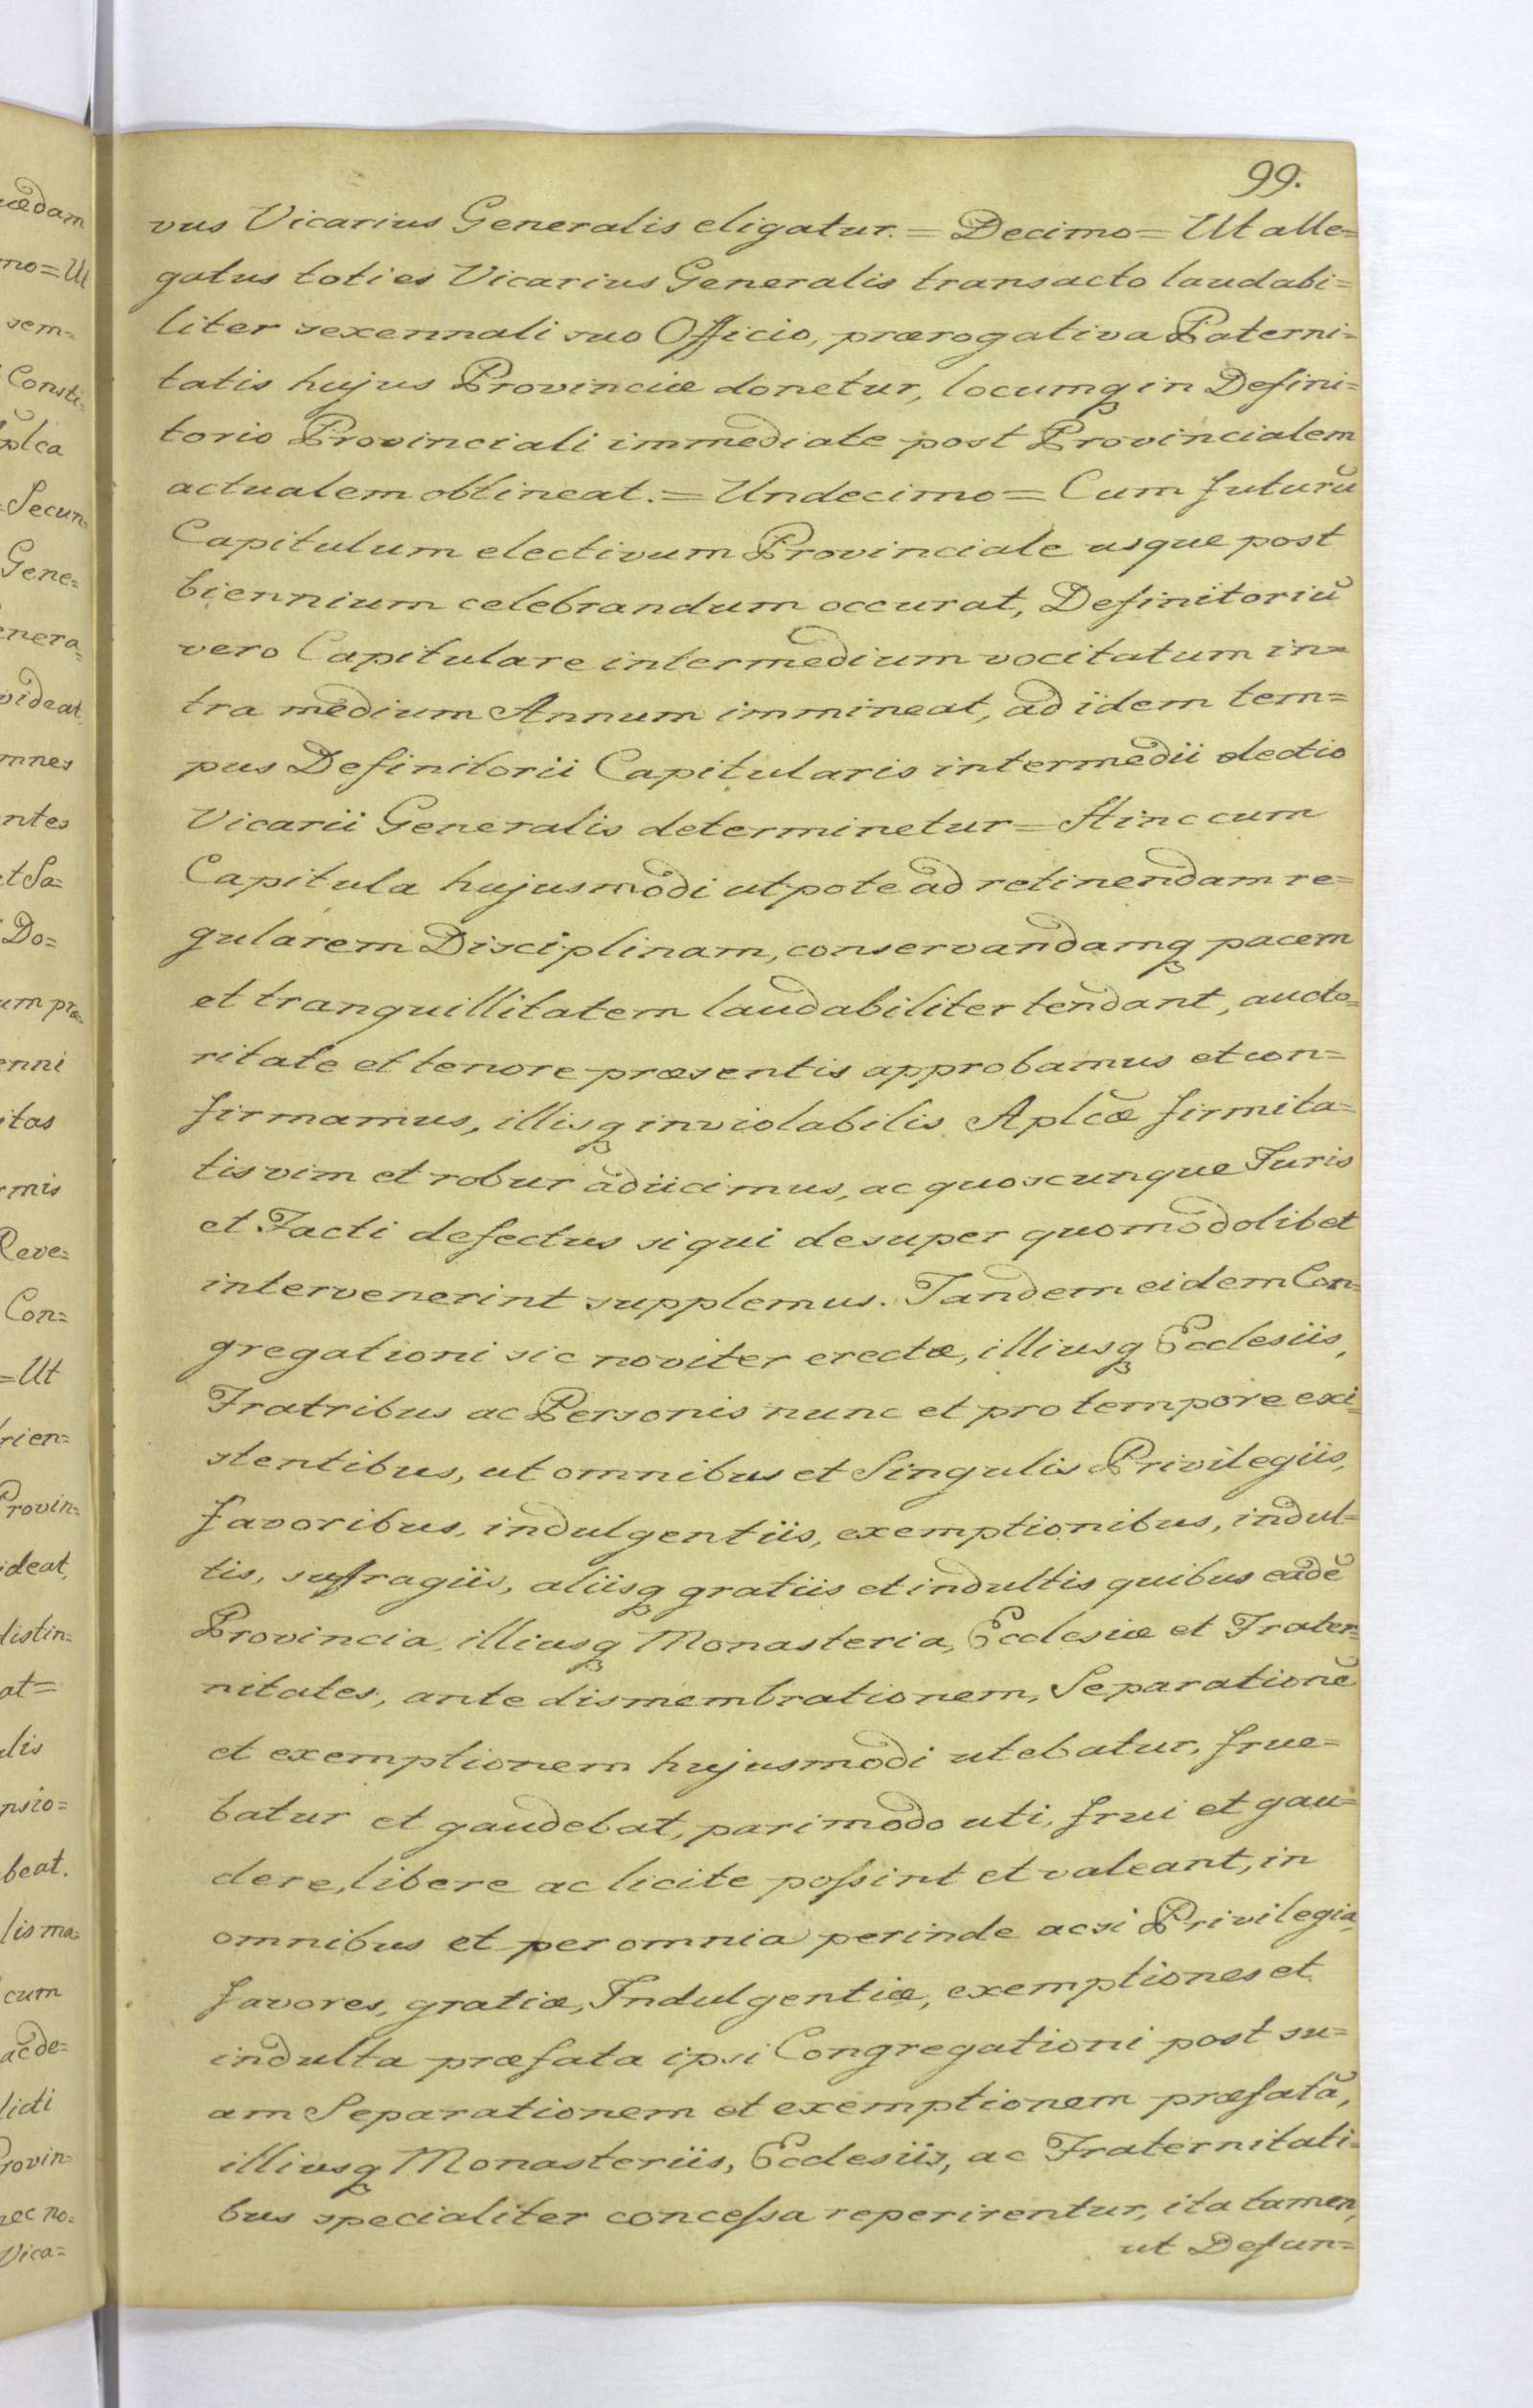 99.
vus Vicarius Generalis eligatur. = Decimo = Ut alle=
gatus toties Vicarius Generalis transacto laudabi=
liter sexennali suo Officio, prærogativa Paterni=
tatis hujus Provinciæ donetur, locumq in Defini=
torio Provinciali immediate post Provincialem
actualem obtineat. = Undecimo = Cum futurū
Capitulum electivum Provinciale usque post
biennium celebrandum occurat, Definitoriū
vero Capitulare intermedium vocitatum in=
tra medium Annum immineat, ad idem tem=
pus Definitorii Capitularis intermedii electio
Vicarii Generalis determinetur = Hinc cum
Capitula hujusmodi utpote ad retinendam re=
gularem Disciplinam, conservandamq pacem
et tranquillitatem laudabiliter tendant, aucto=
ritate et tenore præsentis approbamus et con=
firmamus, illisq inviolabilis Aplcæ firmita=
tis vim et robur adiicimus, ac quoscunque Juris
et Facti defectus si qui desuper quomodolibet
intervenerint supplemus. Tandem eidem Con=
gregationi sic noviter erectæ, illiusq Ecclesiis,
Fratribus ac Personis nunc et pro tempore exi=
stentibus, ut omnibus et Singulis Privilegiis,
favoribus, indulgentiis, exemptionibus, indul=
tis, suffragiis, aliisq gratiis et indultis quibus eadē
Provincia, illiusq Monasteria, Ecclesiæ et Frater=
nitates, ante dismembrationem, Separationē
et exemptionem hujusmodi utebatur, frue=
batur et gaudebat, pari modo uti, frui et gau=
dere, libere ac licite possint et valeant, in
omnibus et per omnia perinde acsi Privilegia,
favores, gratiæ, Indulgentiæ, exemptiones et
indulta præfata ipsi Congregationi post su=
am Separationem et exemptionem præfatā,
illiusq Monasteriis, Ecclesiis, ac Fraternitati=
bus specialiter concessa reperirentur, ita tamen,
ut Defun=
ædam
mo = Ut
sem=
Consti=
plca
Secun=
Gene=
enera=
videat
mnes
ntes
et Sa=
Do=
um præ=
enni
itas
rmis
Reve=
Con=
= Ut
rien=
Provin=
ideat,
distin=
at =
lis
nsio=
beat.
lis ma=
cum
ac de=
licti
rovin=
nec no=
Vica=